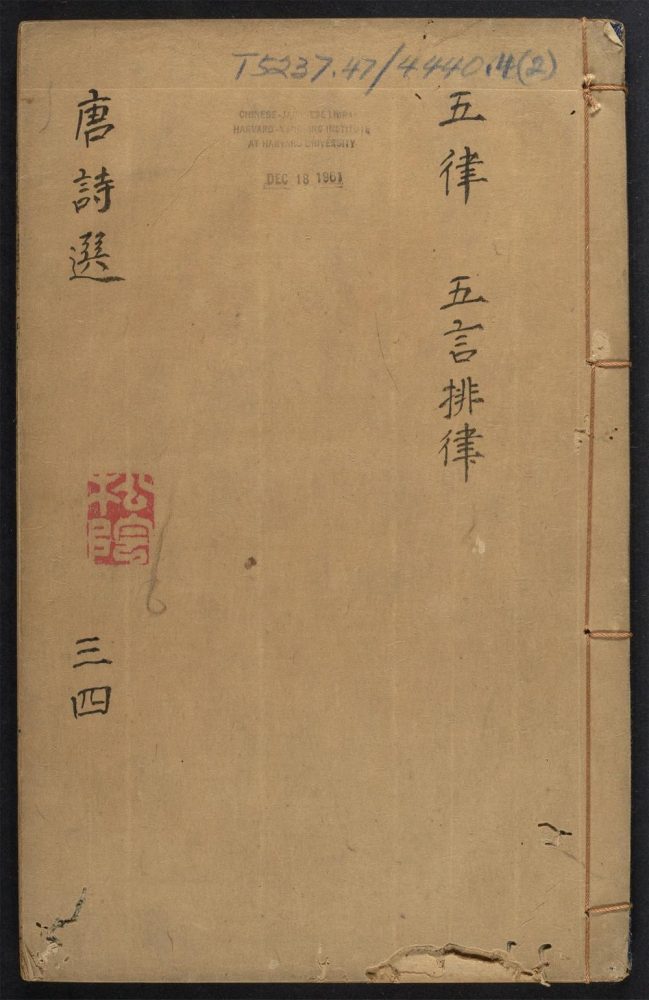 T5237.47/4440.4(2)
CHINESE-JAPANESE LIBRARY
HARVARD-YENCHING INSTITUTE
AT HARVARD UNIVERSITY
DEC 18 1961
五律 五言排律
唐詩選
松陰
三四